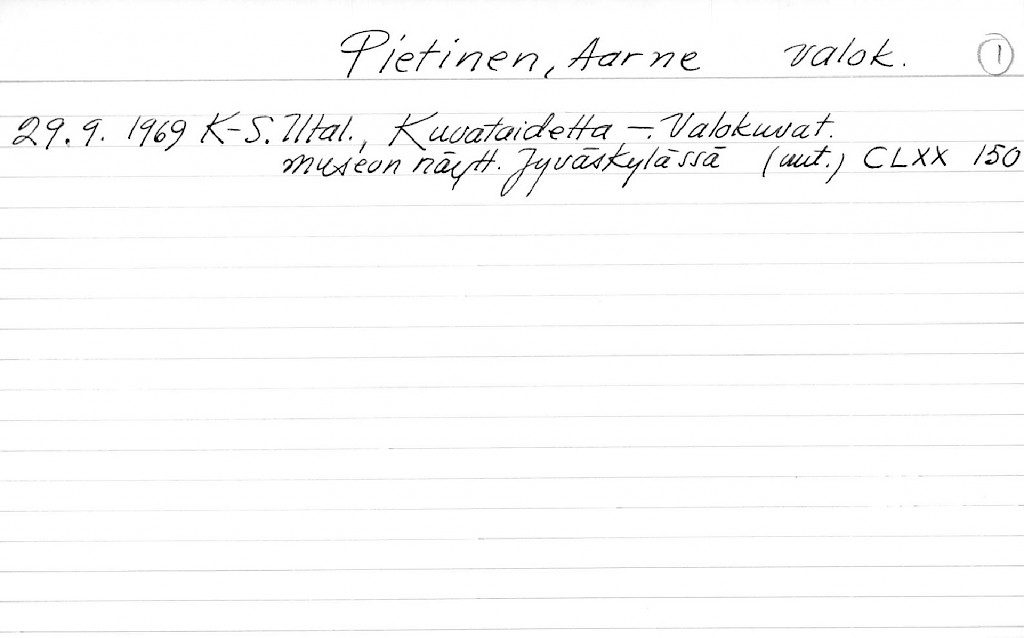 Pietinen, Aarne valok. 1
29.9. 1969 K-S. Iltal., Kuvataidetta –. Valokuvat.
museon näytt. Jyväskylässä (uut.) CLXX 150